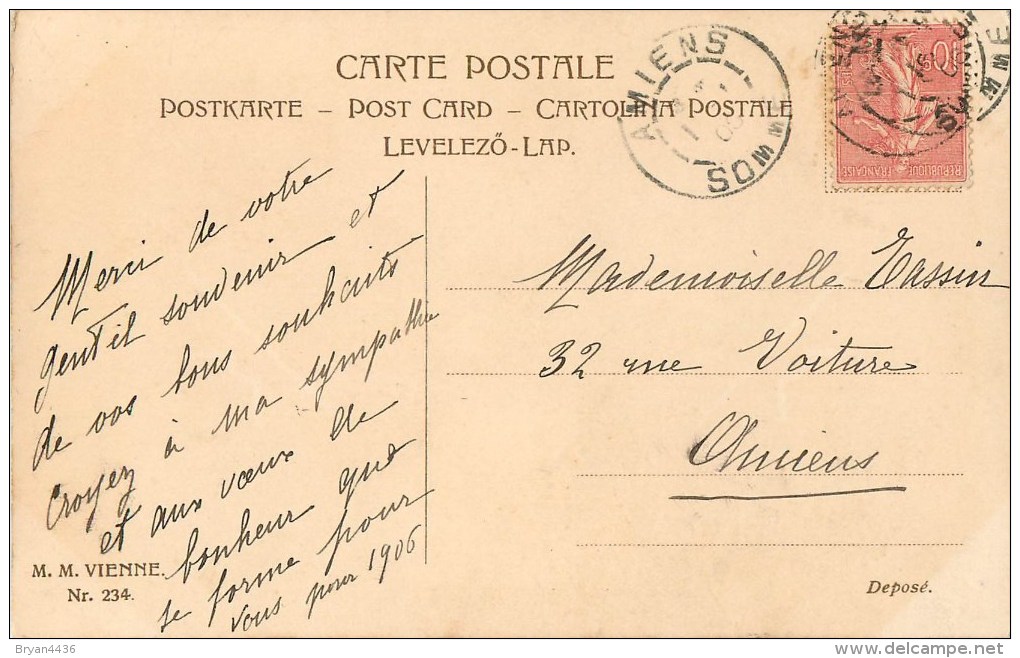 CARTE POSTALE
POSTKARTE – POST CARD – CARTOLINA POSTALE
LEVELEZŐ-LAP.
AMIENS
SOMME
10c
REPUBLIQUE FRANÇAISE
Merci de votre
gentil souvenir et
de vos bons souhaits
Croyez à ma sympathie
et aux vœux de
bonheur que
je forme pour
vous pour 1906
Mademoiselle Tassin
32 rue Voiture
Amiens
M. M. VIENNE.
Nr. 234.
Deposé.
Bryan4436
www.delcampe.net